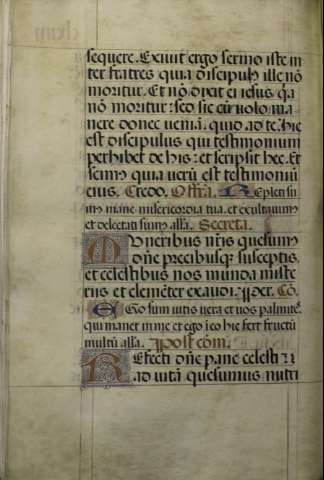 sequere. Exiuit ergo sermo iste in
ter fratres quia discipulꝰ ille nō
moritur. Et nō dixit ei iesus qa
nō moritur: sed sic eū uolo ma
nere donec ueniā. quid ad te. hic
est discipulus qui testimonium
perhibet de his: et scripsit hec. Et
scimꝰ quia uerū est testimoniū
eius. Credo. Offra. Repleti su
mꝰ mane misericordia tua. et exultauimꝰ
et delectati sumꝰ alla. Secreta.
Muneribus nris quesumꝰ
dne precibusqꝫ susceptis.
et celestibus nos munda miste
riis et clemēter exaudi. per. Cō.
Ego sum uitis uera et uos palmite.
qui manet in me et ego ī eo hic fert fructū
multū alla. post com.
Refecti dne pane celesti
ad uitā quesumus nutri